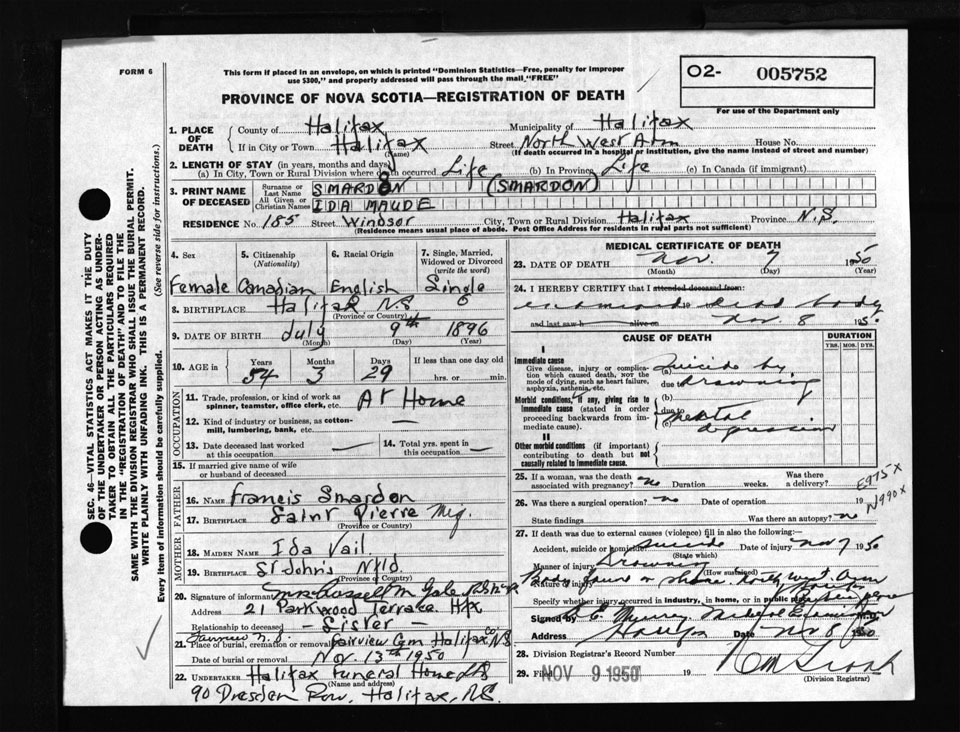 FORM 6
This form if placed in an envelope, on which is printed "Dominion Statistics—Free, penalty for improper
use $300," and properly addressed will pass through the mail "FREE"
PROVINCE OF NOVA SCOTIA—REGISTRATION OF DEATH
02- 005752
For use of the Department only
SEC. 46—VITAL STATISTICS ACT MAKES IT THE DUTY
OF THE UNDERTAKER OR PERSON ACTING AS UNDER-
TAKER TO OBTAIN ALL THE PARTICULARS REQUIRED
IN THE "REGISTRATION OF DEATH" AND TO FILE THE
SAME WITH THE DIVISION REGISTRAR WHO SHALL ISSUE THE BURIAL PERMIT.
WRITE PLAINLY WITH UNFADING INK. THIS IS A PERMANENT RECORD.
Every item of information should be carefully supplied. (See reverse side for instructions.)
1. PLACE OF DEATH
County of Halifax Municipality of Halifax
If in City or Town Halifax (Name) Street North West Arm House No.
(If death occurred in a hospital or institution, give the name instead of street and number)
2. LENGTH OF STAY (in years, months and days)
(a) In City, Town or Rural Division where death occurred Life (b) In Province Life (c) In Canada (if immigrant)
3. PRINT NAME OF DECEASED
Surname or Last Name SMARDON (SMARDON)
All Given or Christian Names IDA MAUDE
RESIDENCE No. 185 Street Windsor City, Town or Rural Division Halifax Province N.S.
(Residence means usual place of abode. Post Office Address for residents in rural parts not sufficient)
4. Sex Female
5. Citizenship (Nationality) Canadian
6. Racial Origin English
7. Single, Married, Widowed or Divorced (write the word) Single
8. BIRTHPLACE Halifax N.S.
(Province or Country)
9. DATE OF BIRTH July 9th 1896
(Month) (Day) (Year)
10. AGE in Years 54 Months 3 Days 29 If less than one day old hrs. or min.
OCCUPATION
11. Trade, profession, or kind of work as spinner, teamster, office clerk, etc. At Home
12. Kind of industry or business, as cotton-mill, lumbering, bank, etc. —
13. Date deceased last worked at this occupation —
14. Total yrs. spent in this occupation —
15. If married give name of wife or husband of deceased
FATHER
16. NAME Francis Smardon
17. BIRTHPLACE Saint Pierre Mq.
(Province or Country)
MOTHER
18. MAIDEN NAME Ida Vail.
19. BIRTHPLACE St. John's Nfld.
(Province or Country)
20. Signature of informant Mrs Russell M
Address 21 Parkwood Terrace. Hfx
Relationship to deceased - Sister -
21. Place of burial, cremation or removal Fairview Cem. Halifax Co N.S.
Date of burial or removal Nov. 13th 1950
22. UNDERTAKER Halifax Funeral Home Ltd
(Name and address)
90 Dresden Row, Halifax, N.S.
MEDICAL CERTIFICATE OF DEATH
23. DATE OF DEATH Nov. 7 1950
(Month) (Day) (Year)
24. I HEREBY CERTIFY that I attended deceased from:
examined dead body
and last saw h alive on Nov. 8 1950
CAUSE OF DEATH
DURATION
YRS. MOS. DYS.
I
Immediate cause
Give disease, injury or complication which caused death, not the mode of dying, such as heart failure, asphyxia, asthenia, etc.
(a) Suicide by
due to drowning
Morbid conditions, if any, giving rise to immediate cause (stated in order proceeding backwards from immediate cause).
(b)
due to
(c) Mental depression
II
Other morbid conditions (if important) contributing to death but not causally related to immediate cause.
25. If a woman, was the death associated with pregnancy? no Duration weeks. Was there a delivery?
E975X
N990X
26. Was there a surgical operation? no Date of operation 19
State findings Was there an autopsy? no
27. If death was due to external causes (violence) fill in also the following:
Accident, suicide or homicide suicide Date of injury Nov 7 1950
(State which)
Manner of injury Drowning
(How sustained)
Nature of injury Body found on shore North West Arm
Specify whether injury occurred in industry, in home, or in public place
Signed by Medical Examiner
Address Halifax Date Nov 8 1950
28. Division Registrar's Record Number
29. Filed NOV 9 1950 19
(Division Registrar)